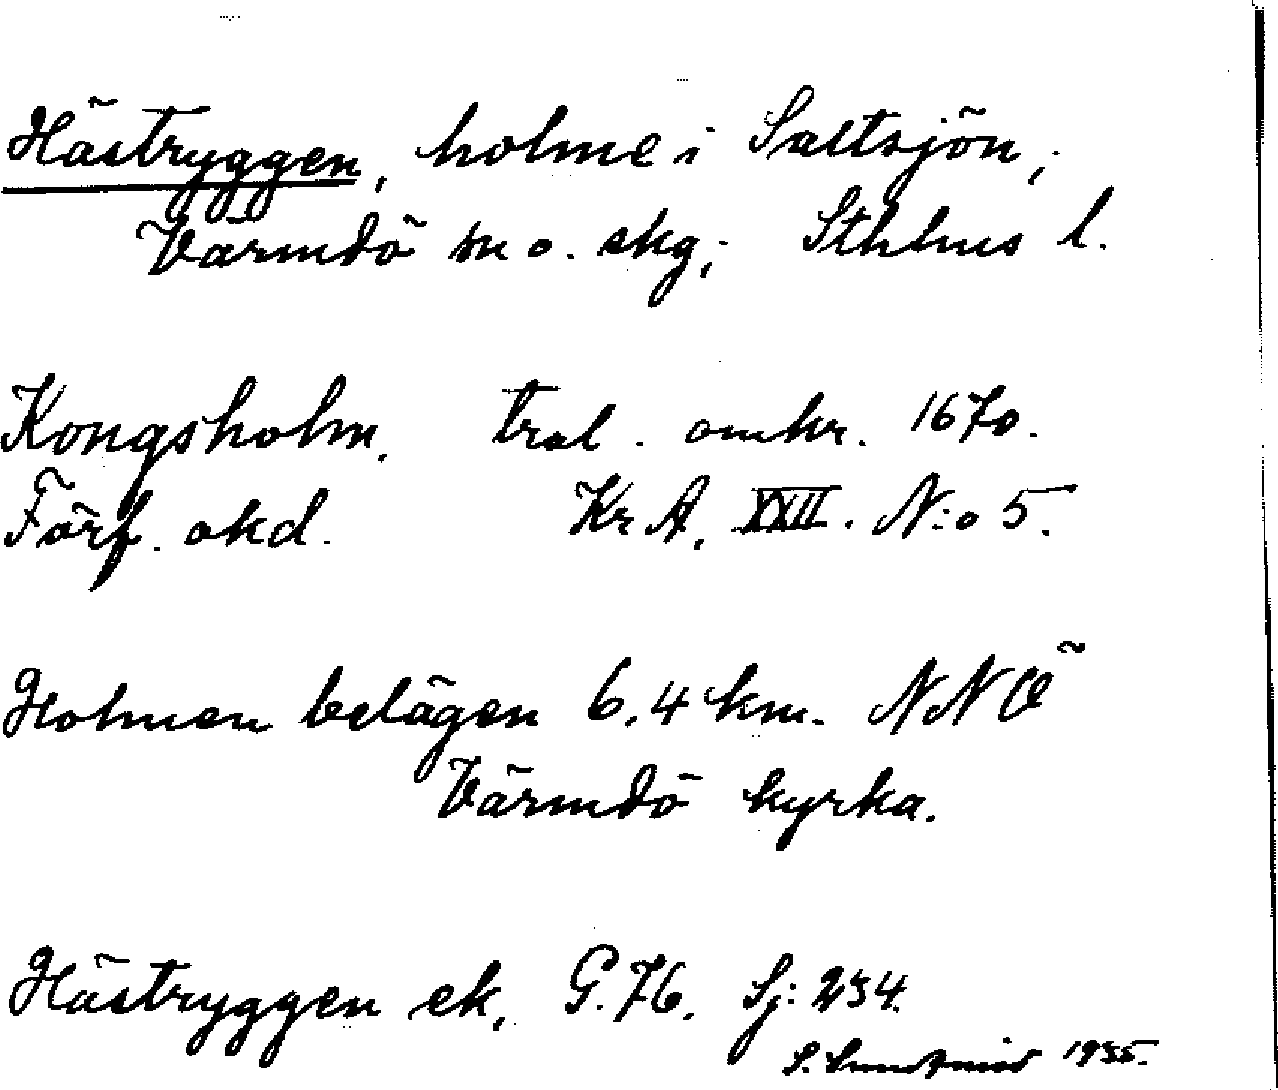 Hästryggen, holme i Saltsjön,
Värmdö sn o. skg, Sthlms l.
Kongsholm. tral. omkr. 1670.
Förf. okd. Kr A. XXII. N:o 5.
Holmen belägen 6,4 km. NNÖ
Värmdö kyrka.
Hästryggen ek. G.76. Sj: 234.
S. 1935.